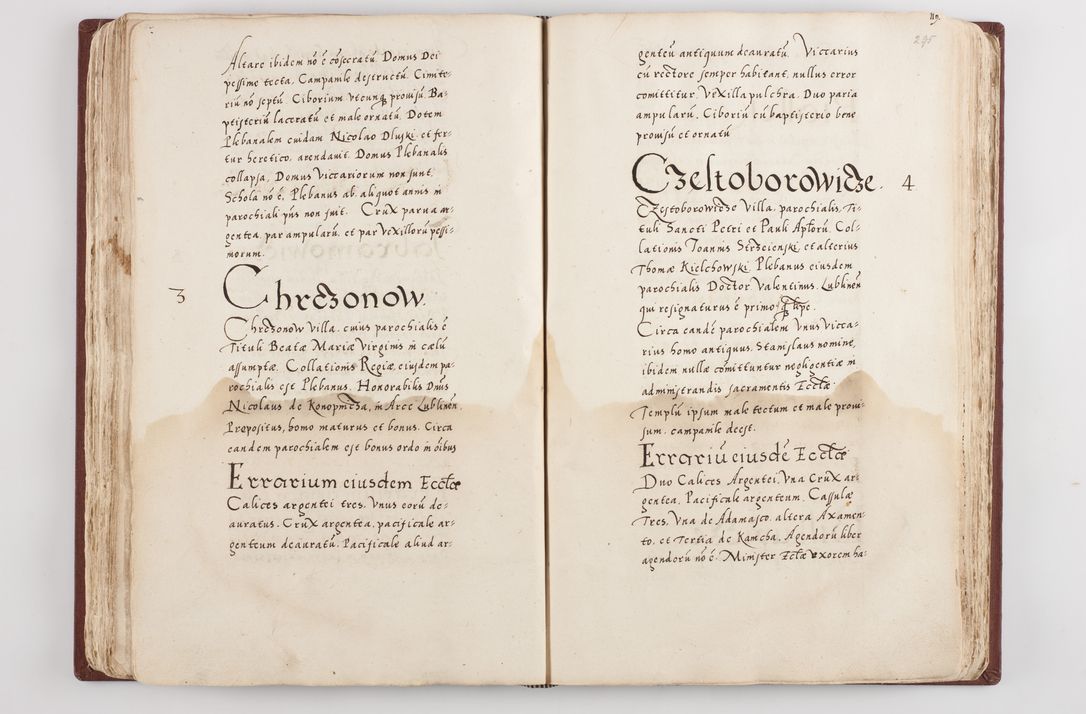 Altare ibidem nō ē cōsecratū. Domus Dei
pessime tecta, Campanile destructū. Cimite-
riū nō septū. Ciborium vtcunq₃ prouisū. Ba-
ptisteriū laceratū et male ornatū. Dotem
Plebanalem cuidam Nicolao Dluski, et fer-
tur heretico, arendauit. Domus Plebanalis
collapsa, Domus Viccariorum non sunt.
Schola nō ē. Plebanus ab aliquot annis in
parochiali pn̄s non fuit. Crux parua ar-
gentea, par ampularū, et par Vexillorū pessi-
morum.
3
Chrczonow.
Chrczonow Villa, cuius parochialis ē
Tituli Beatæ Mariæ Virginis in cælū
assumptæ. Collationis Regiæ, eiusdem pa-
rochialis est Plebanus. Honorabilis Dn̄s
Nicolaus de Konopnicza, in Arce Lublinēn.
Prepositus, homo maturus et bonus. Circa
eandem parochialem est bonus ordo in ōibus
Errarium eiusdem Eccl̄æ
Calices argentei tres, Vnus eorū de-
auratus. Crux argentea, pacificale ar-
genteum deauratū. Pacificale aliud ar-
119.
295
genteū antiquum deauratū. Viccarius
cū rectore semper habitant, nullus error
comittitur. Vexilla pulchra. Duo paria
ampularū. Ciboriū cū baptisterio bene
prouisū et ornatū
Czestoborowicze. 4
Czestoborowicze Villa, parochialis, Ti-
tuli Sancti Petri et Pauli Apl̄orū. Col-
lationis Ioannis Strzeienski, et alterius
Thomæ Kielchowski. Plebanus eiusdem
parochialis Doctor Valentinus, Lublinēn
qui resignaturus ē primo
Circa eandē parochialem Vnus Vicca-
rius homo antiquus, Stanislaus nomine,
ibidem nullæ comittuntur negligentiæ in
administrandis sacramentis Eccl̄æ.
Templū ipsum male tectum et male proui-
sum, campanile deest.
Errariū eiusdē Eccl̄æ
Duo Calices Argentei, Vna Crux ar-
gentea, Pacificale argenteum, Cassulæ
Tres, Vna de Adamasco, altera Axamen-
to, et Tertia de Kamcha, Agendorū liber
agendorū nō ē. Minister Eccl̄æ Vxorem ha-